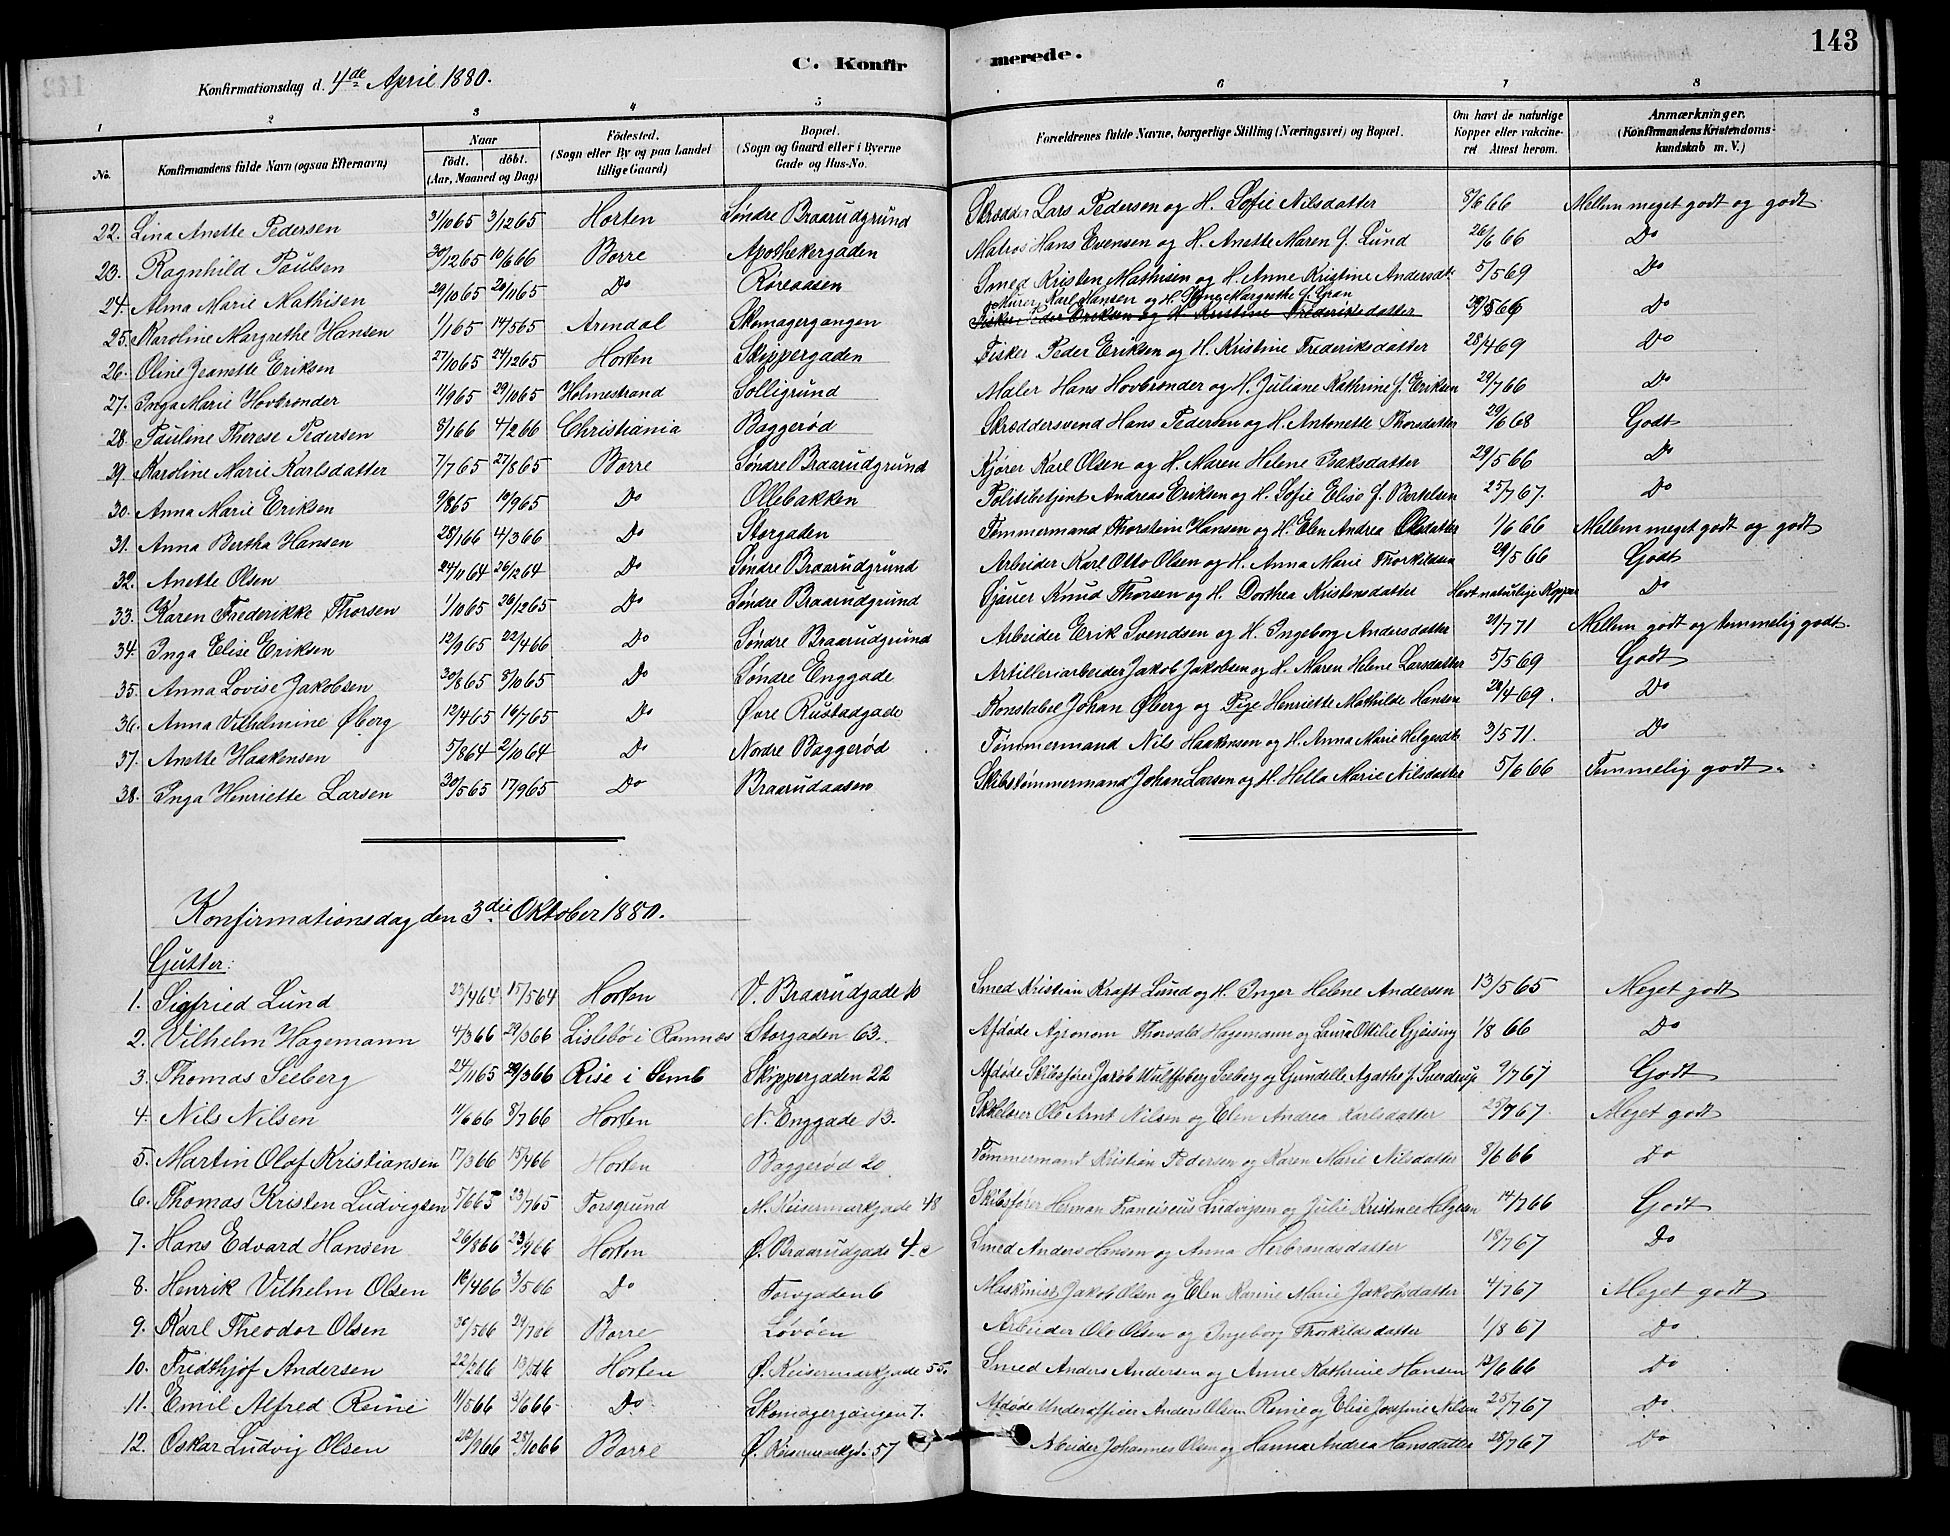 143
C. Konfirmerede.
Konfirmationsdag d. 4de April 1880.
1 2 3 4 5 6 7 8
No. Konfirmandens fulde Navn (ogsaa Efternavn) Naar født. døbt. (Aar, Maaned og Dag) Fødested. (Sogn eller By og paa Landet tillige Gaard) Bopæl. (Sogn og Gaard eller i Byerne Gade og Hus-No. Forældrenes fulde Navne, borgerlige Stilling (Næringsvei) og Bopæl. Om havt de naturlige Kopper eller vaccineret Attest herom. Anmærkninger. (Konfirmandens Kristendomskundskab m. V.)
22. Lina Anette Pedersen 31/10 65 3/12 65 Horten Søndre Braarudgrund Skrædder Lars Pedersen og H. Sofie Nilsdatter 8/6 66 Mellem meget godt og godt
23. Ragnhild Paulsen 30/12 65 10/6 66 Borre Apothekergaden Matros Hans Evensen og H. Anette Maren f. Lund 26/6 66 Do
24. Alma Marie Mathisen 29/10 65 Do Røreaasen Smed Kristen Mathisen og H. Anne Kristine Andersdt. 5/5 69 Do
25. Karoline Margrethe Hansen 1/1 65 14/5 65 Arendal Skomagergangen Murer Karl Hansen og H. Margrethe f. Gran
Fisker Peder Eriksen og H. Kristine Frederiksdatter 29/5 66 Do
26. Oline Jeanette Eriksen 27/10 65 24/12 65 Horten Skippergaden Fisker Peder Eriksen og H. Kristine Frederiksdatter 28/4 69 Do
27. Inga Marie Hovbrønder 11/9 65 29/10 65 Holmestrand Solligrund Maler Hans Hovbrønder og H. Juliane Kathrine f. Eriksen 29/7 66 Do
28. Pauline Therese Pedersen 8/1 66 4/2 66 Christiania Baggerød Skræddersvend Hans Pedersen og H. Antonette Thorsdatter 29/6 68 Godt
29. Karoline Marie Karlsdatter 7/7 65 27/8 65 Borre Søndre Braarudgrund Kjører Karl Olsen og H. Maren Helene Isaksdatter 29/5 66 Do
30. Anna Marie Eriksen 9/8 65 10/9 65 Do Ollebakken Politibetjent Andreas Eriksen og H. Sofie Elise f. Bertelsen 25/7 67. Do
31. Anna Bertha Hansen 28/1 66 4/3 66 Do Storgaden Tømmermand Thorstein Hansen og H. Elen Andrea Olsdatter 1/6 66 Mellem meget godt og godt
32. Anette Olsen 24/11 64 26/12 64 Do Søndre Braarudgrund Arbeider Karl Otto Olsen og H. Anna Marie Thorkildsen 29/5 66 Godt
33. Karen Frederikke Thorsen 1/10 65 26/12 65 Do Søndre Braarudgrund Knud Thorsen og H. Dorthea Kristensdatter Havt naturlige Kopper Do
34. Inga Elise Eriksen 12/9 65 22/4 66 Do Søndre Braarudgrund Arbeider Erik Svendsen og H. Ingeborg Andersdatter 29/7 71 Mellem godt og temmelig godt.
35. Anna Lovise Jakobsen 30/8 65 8/10 65 Do Søndre Enggade Artilleriarbeider Jakob Jakobsen og H. Maren Helene Larsdatter 5/5 69 Godt
36. Anna Vilhelmine Øberg 12/4 65 16/7 65 Do Øvre Rustadgade Konstabel Johan Øberg og Pige Henriette Mathilde Hansen 28/4 69. Do
37. Anette Haakensen 5/8 64 2/10 64 Do Nordre Baggerød Tømmermand Nils Haakensen og H. Anna Marie Helgesdt. 3/5 71. Do
38. Inga Henriette Larsen 30/5 65 17/9 65 Do Braarudaasen Skibstømmermand Johan Larsen og H. Hella Marie Nilsdatter 5/6 66 Temmelig godt
Konfirmationsdag den 3die Oktober 1880.
Gutter:
1. Sigfried Lund 23/4 64 15/5 64 Horten V. Braarudgade 10 Smed Kristian Kraft Lund og H. Inger Helene Andersen 13/5 65 Meget godt
2. Vilhelm Hagemann 4/3 66 29/3 66 Lislebø i Ramnæs Storgaden 63. Afdøde Agronom Thorvald Hagemann og Laura Otilie Gjeising 1/8 66 Do
3. Thomas Seeberg 24/11 65 29/3 66 Rise i Semb Skippergaden 22 Afdøde Skibsfører Jakob Wulffsberg Seeberg og Gundelle Agathe f. Sverdrup 9/7 67 Godt
4. Nils Nilsen 11/6 66 8/7 66 Horten N. Enggade 13. Ole Arnt Nilsen og Elen Andrea Karlsdatter 25/7 67. Meget godt
5. Martin Olaf Kristiansen 17/3 66 15/4 66 Horten Baggerød 20 Tømmermand Kristian Pedersen og Karen Marie Nilsdatter 8/6 66 Do
6. Thomas Kristen Ludvigsen 5/6 65 23/7 65 Porsgrund M. Keisermarkgade 48 Skibsfører Herman Franciscus Ludvigsen og Julie Kristine Helgesen 14/7 66 Godt
7. Hans Edvard Hansen 26/8 66 23/9 66 Horten Ø. Braarudgade 4.c Smed Anders Hansen og Anna Herbrandsdatter 18/7 67 Do
8. Henrik Vilhelm Olsen 16/4 66 3/5 66 Do Torvgaden 6 Maskinist Jakob Olsen og Elen Karine Marie Jakobsdatter 4/7 67 Meget godt
9. Karl Theodor Olsen 30/5 66 29/7 66 Borre Løvøen Arbeider Ole Olsen og Ingeborg Thorkildsdatter 1/8 67 Do
10. Fridthjof Andersen 22/2 66 13/5 66 Horten Ø. Keisermarkgade 55. Smed Anders Andersen og Anne Kathrine Hansen 12/6 66 Do
11. Emil Alfred Reine 11/5 66 3/6 66 Do Skomagergangen 7. Afdøde Underofficer Anders Olsen Reine og Elise Josefine Nilsen 25/7 67 Do
12. Oskar Ludvig Olsen 22/9 66 28/10 66 Borre Ø. Keisermarkgd. 57 Arbeider Johannes Olsen og Hanna Andrea Hansdatter 28/7 67 Do